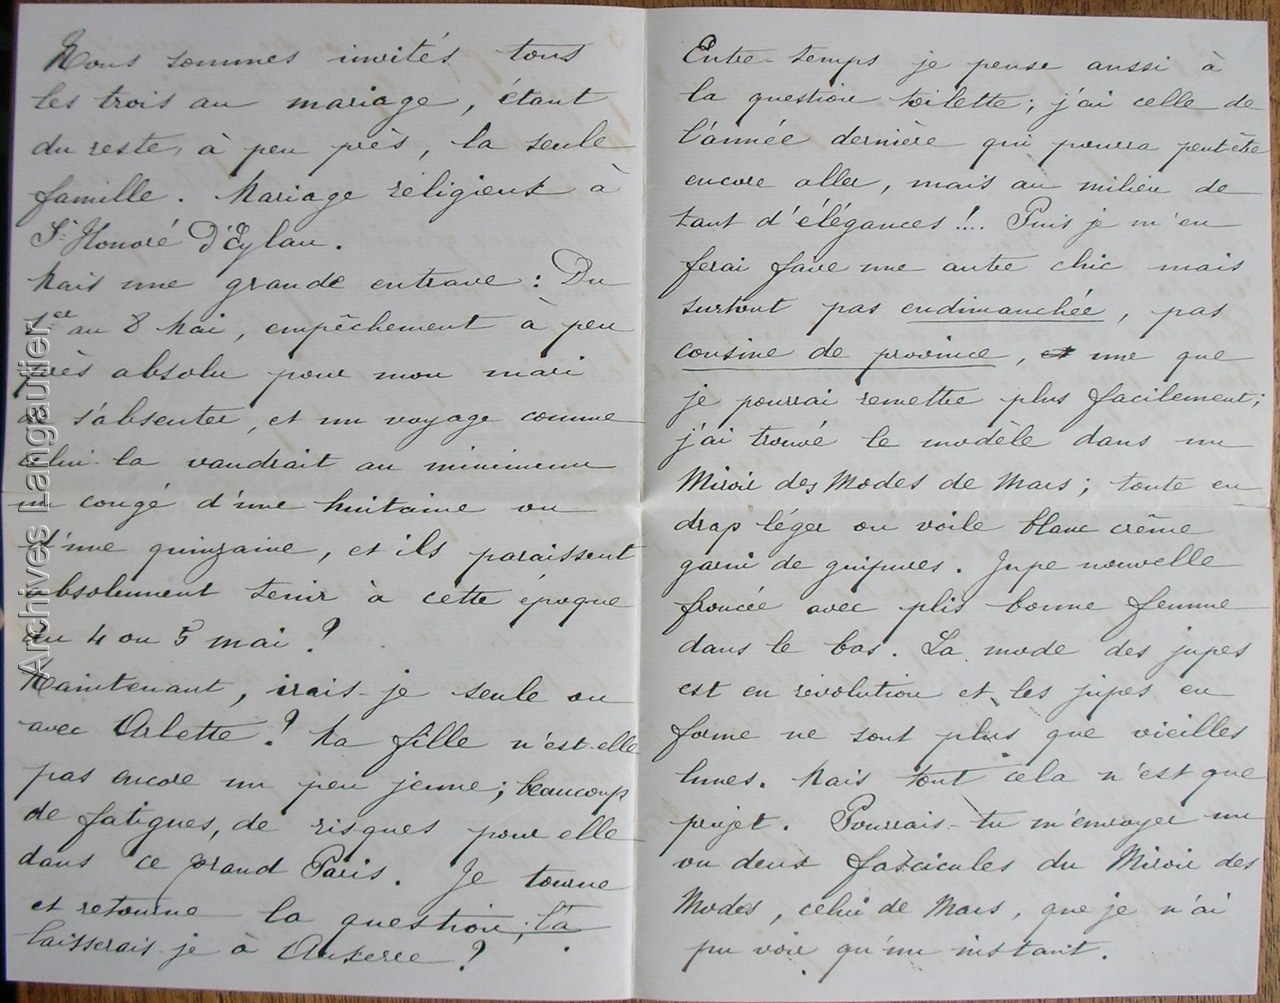 Nous sommes invités tous
les trois au mariage, étant
du reste, à peu près, la seule
famille. Mariage réligieux à
St Honoré d'Eylau.
Mais une grande entrave : Du
1er au 8 Mai, empêchement à peu
près absolu pour mon mari
de s'absenter, et un voyage comme
celui-la vaudrait au minimum
un congé d'une huitaine ou
d'une quinzaine, et ils paraissent
absolument tenir à cette époque
du 4 ou 5 mai ?
Maintenant, irais-je seule ou
avec Arlette ? Ma fille n'est-elle
pas encore un peu jeune ; beaucoup
de fatigues, de risques pour elle
dans ce grand Paris. Je tourne
et retourne la question ; la
laisserais-je à Auxerre ?
Entre-temps je pense aussi à
la question toilette ; j'ai celle de
l'année dernière qui pourra peut-être
encore aller, mais au milieu de
tant d'élégances !... Puis je m'en
ferai faire une autre chic mais
surtout pas endimanchée, pas
cousine de province, et une que
je pourrai remettre plus facilement ;
j'ai trouvé le modèle dans un
Miroir des Modes de Mars ; toute en
drap léger ou voile blanc crême
garni de guipures. Jupe nouvelle
froncée avec plis bonne femme
dans le bas. La mode des jupes
est en révolution et les jupes en
forme ne sont plus que vieilles
lunes. Mais tout cela n'est que
projet. Pourrais-tu m'envoyer un
ou deux fascicules du Miroir des
Modes, celui de Mars, que je n'ai
pu voir qu'un instant.
Archives Langautier